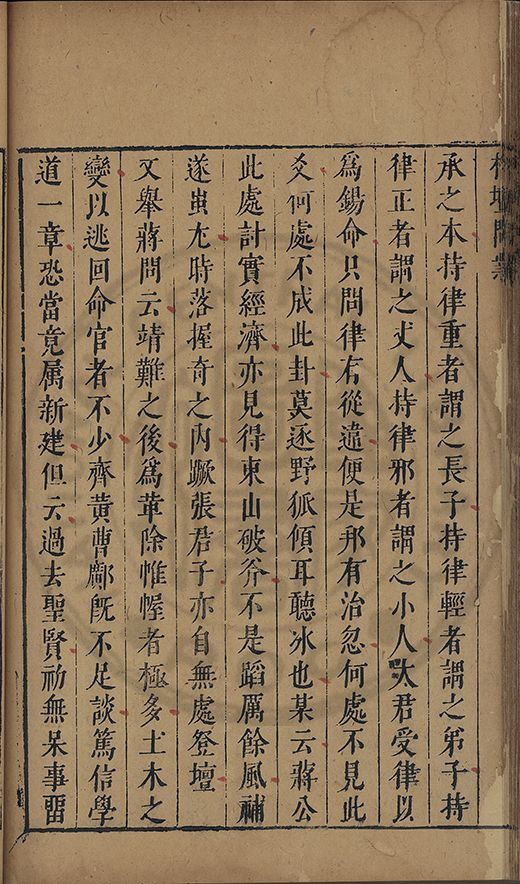 榕壇問業
承之本持律重者謂之長子持律輕者謂之弟子持
律正者謂之丈人持律邪者謂之小人大君受律以
爲錫命只問律有從違便是邦有治忽何處不見此
爻何處不成此卦莫逐野狐傾耳聽冰也某云蔣公
此處計實經濟亦見得東山破斧不是蹈厲餘風補
遂蚩尤時落握奇之內蹶張君子亦自無處登壇
又舉蔣問云靖難之後爲革除帷幄者極多土木之
變以逃回命官者不少齊黃曹鄺旣不足談篤信學
道一章恐當竟属新建但云過去聖賢初無呆事畱